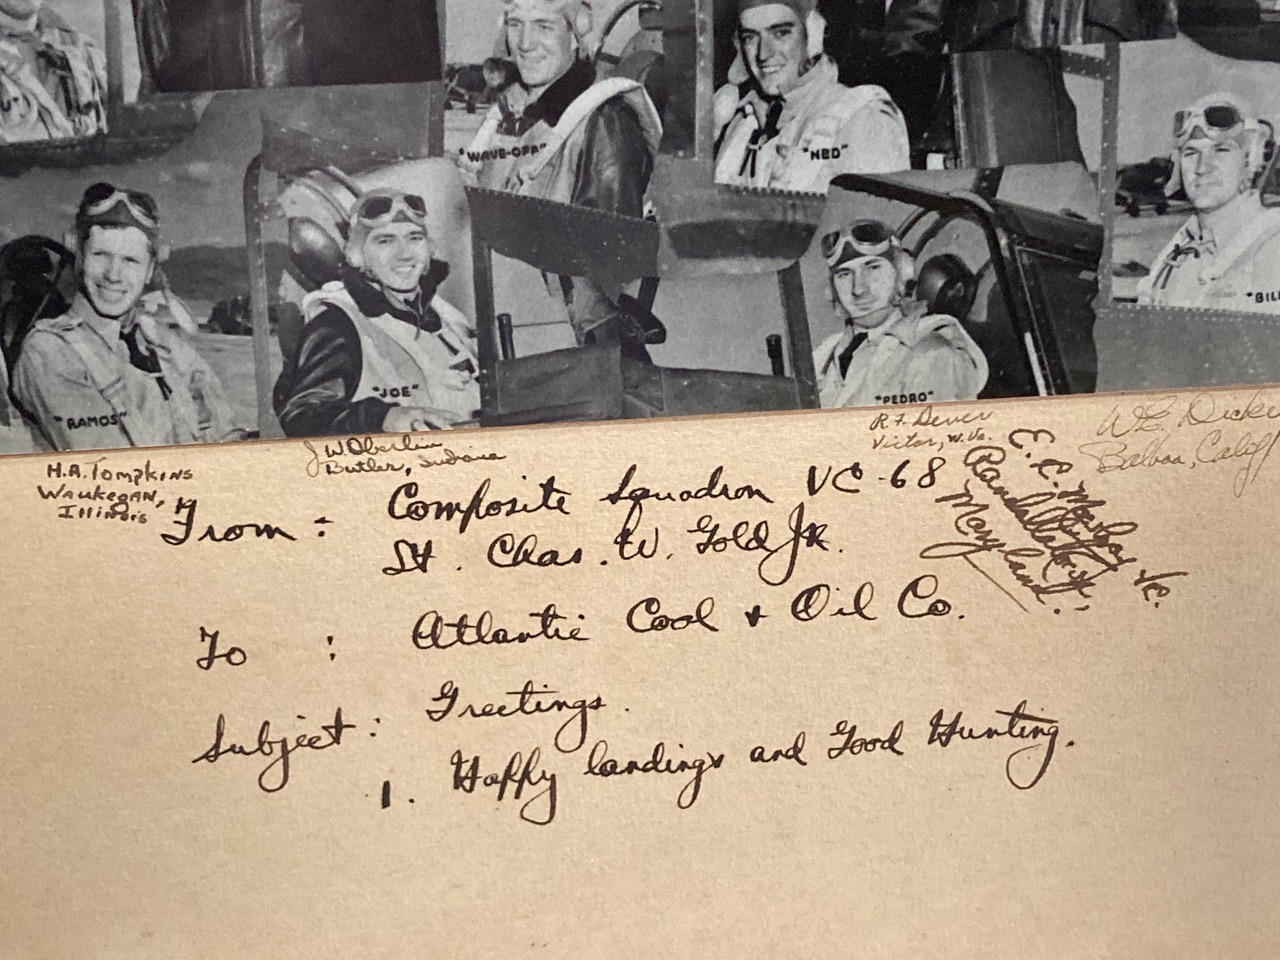 "WAVE-OFF"
"NED"
"BILL
"RAMOS"
"JOE"
"PEDRO"
H.A. Tompkins
Waukegan,
Illinois
J.W. Oberlin
Butler, Indiana
R.F. Dever
Victor, W. Va.
E. E.
Randallstown,
Maryland.
W.E. Dicke
Balboa, Calif
From : Composite Squadron VC-68
Lt. Chas. W. Gold Jr.
To : Atlantic Coal & Oil Co.
Subject : Greetings.
1. Happy landings and Good Hunting.